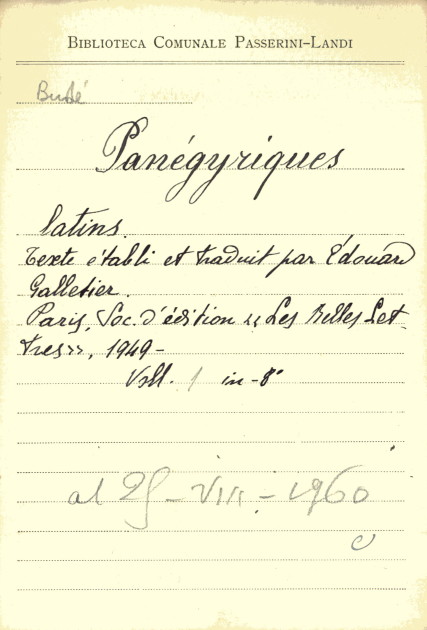 BIBLIOTECA COMUNALE PASSERINI-LANDI
Budé
Panégyriques
latins.
Texte établi et traduit par Édouard
Galletier.
Paris, Soc. d'édition «Les Belles Let-
tres», 1949-
Voll. 1 in-8°
al 25-VIII-1960